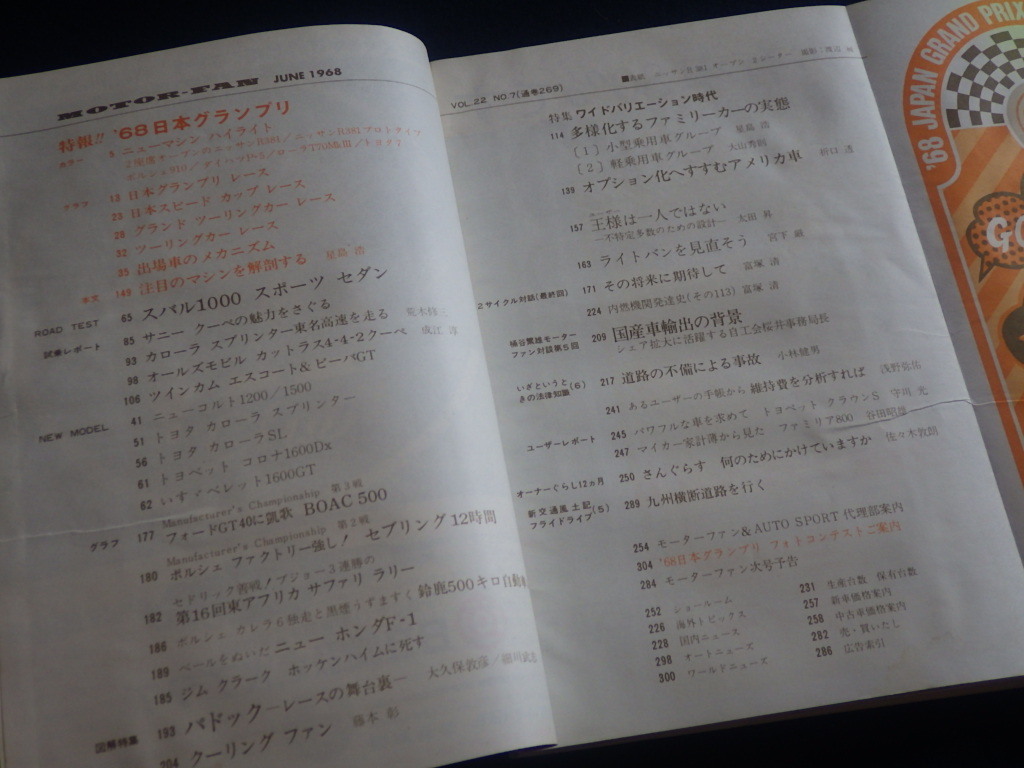 MOTOR-FAN JUNE 1968
特報!! '68日本グランプリ
カラー 5 ニューマシン ハイライト
2座席オープンのニッサンR381/ニッサンR381プロトタイプ
ポルシェ910/ダイハツP-5/ローラT70MkIII/トヨタ7
グラフ 13 日本グランプリ レース
23 日本スピード カップ レース
28 グランド ツーリングカー レース
32 ツーリングカー レース
35 出場車のメカニズム
本文 149 注目のマシンを解剖する 星島 浩
ROAD TEST 65 スバル1000 スポーツ セダン
試乗レポート 85 サニー クーペの魅力をさぐる
93 カローラ スプリンター東名高速を走る
98 オールズモビル カットラス4・4・2クーペ 成江 淳
106 ツインカム エスコート&ビーバGT
NEW MODEL 41 ニューコルト1200/1500
51 トヨタ カローラ スプリンター
56 トヨタ カローラSL
61 トヨペット コロナ1600Dx
62 いすゞベレット1600GT
Manufacturer's Championship 第3戦
グラフ 177 フォードGT40に凱歌 BOAC 500
Manufacturer's Championship 第2戦
180 ポルシェ ファクトリー強し! セブリング12時間
セドリック善戦!プジョー3連勝の
182 第16回東アフリカ サファリ ラリー
186 ポルシェ カレラ6独走と黒煙うずまく 鈴鹿500キロ自動
189 ベールをぬいだ ニュー ホンダF-1
185 ジム クラーク ホッケンハイムに死す
図解特集 193 パドック―レースの舞台裏― 大久保敦彦/
204 クーリング ファン 藤本 彰
VOL.22 NO.7(通巻269)
■表紙 ニッサンR381 オープン 2シーター 撮影:渡辺
特集 ワイドバリエーション時代
114 多様化するファミリーカーの実態
〔1〕小型乗用車グループ 星島 浩
〔2〕軽乗用車グループ 大山秀則
139 オプション化へすすむアメリカ車 樹口 透
157 王様は一人ではない
―不特定多数のための設計― 太田 昇
163 ライトバンを見直そう 宮下 巌
2サイクル対談(最終回) 171 その将来に期待して 富塚 清
224 内燃機関発達史(その113) 富塚 清
ファン対談第5回 209 国産車輸出の背景
シェア拡大に活躍する自工会桜井事務局長
いざというときの法律知識(6) 217 道路の不備による事故 小林健男
241 あるユーザーの手帳から 維持費を分析すれば 浅野弥祐
ユーザーレポート 245 パワフルな車を求めて トヨペット クラウンS 守川 光
247 マイカー家計簿から見た ファミリア800 谷田昭雄
オーナーぐらし12ヵ月 250 さんぐらす 何のためにかけていますか 佐々木敦朗
新交通風土記/フライドライブ(5) 289 九州横断道路を行く
254 モーターファン&AUTO SPORT 代理部案内
304 '68日本グランプリ フォトコンテストご案内
284 モーターファン次号予告
252 ショールーム
226 海外トピックス
228 国内ニュース
298 オートニュース
300 ワールドニュース
231 生産台数 保有台数
257 新車価格案内
258 中古車価格案内
282 売・買いたし
286 広告索引
'68 JAPAN GRAND PRIX
GO